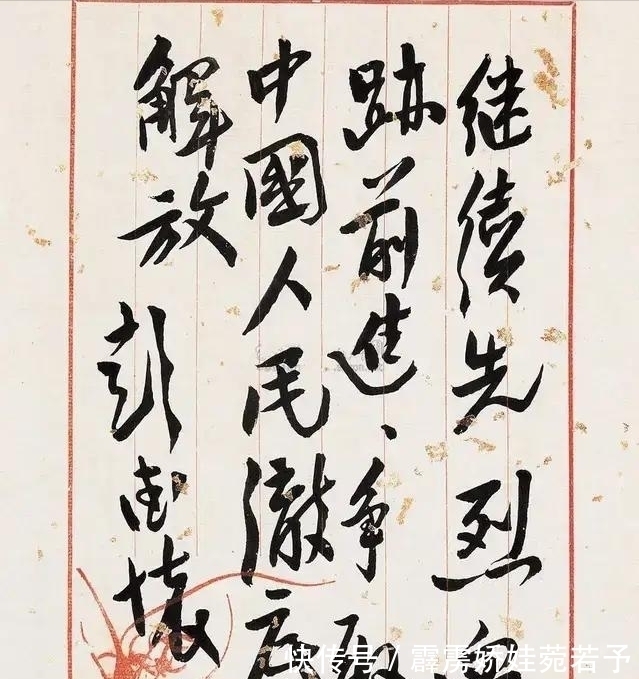 继续先烈血
跡前進、争取
中國人民澈底
解放 彭德懷
快传号/霹雳娇娃苑若予